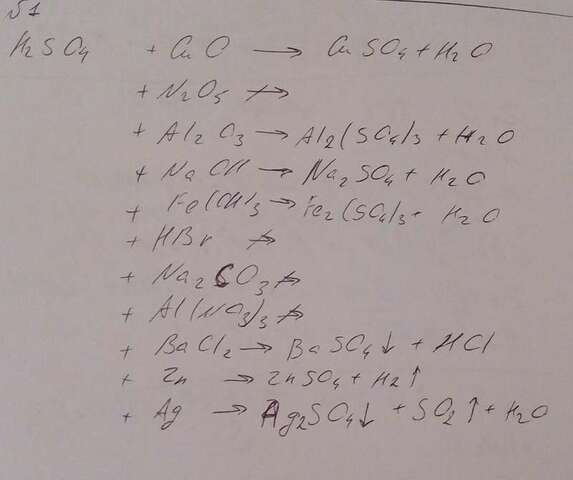 №1
H₂SO₄ + CuO → CuSO₄ + H₂O
+ N₂O₅ ↛
+ Al₂O₃ → Al₂(SO₄)₃ + H₂O
+ NaOH → Na₂SO₄ + H₂O
+ Fe(OH)₃ → Fe₂(SO₄)₃ + H₂O
+ HBr ↛
+ Na₂CO₃ ↛
+ Al(NO₃)₃ ↛
+ BaCl₂ → BaSO₄↓ + HCl
+ Zn → ZnSO₄ + H₂↑
+ Ag → Ag₂SO₄↓ + SO₂↑ + H₂O